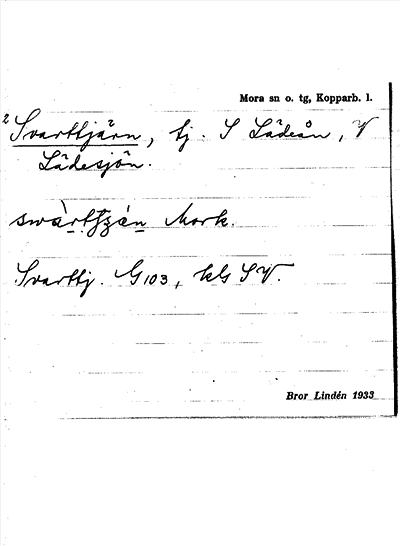 Mora sn o. tg, Kopparb. l.
2 Svarttjärn, tj. S Lädeån, V
Lädesjön.
Mork.
Svarttj. G103, kls SV.
Bror Lindén 1933